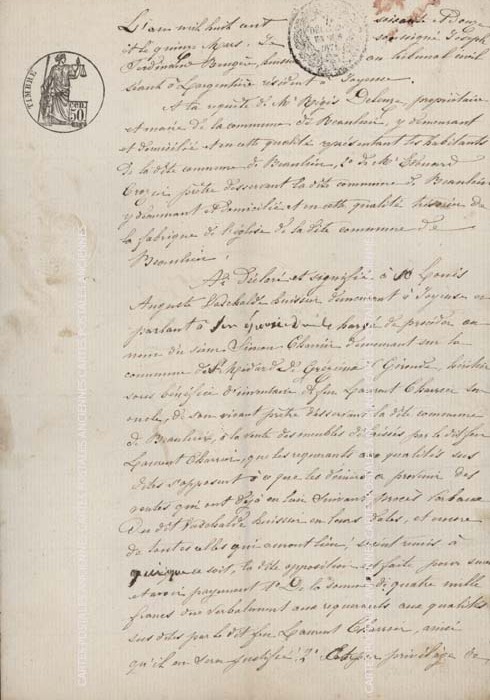 L'an mil huit cent soixante Douze
et le quinze Mars. Je soussigné Joseph
Ferdinand huissier au tribunal civil
séant à Largentière résidant à Joyeuse.
A la requête de Mr Régis Deleuze, propriétaire
et maire de la commune de Beaulieu, y demeurant
et domicilié et en cette qualité représentant les habitants
de la dite commune de Beaulieu, 2° de Mr Edouard
Crozier prêtre desservant la dite commune de Beaulieu
y demeurant et domicilié et en cette qualité trésorier de
la fabrique de l'église de la dite commune de
Beaulieu;
Ai Déclaré et signifié à Mr Louis
Auguste huissier demeurant à Joyeuse en
parlant à son épouse chargé de procéder au
nom du sieur Simon Charrier demeurant sur la
commune de St Médard de Gironde, héritier
sous bénéfice d'inventaire de feu Laurent Charrier son
oncle, de son vivant prêtre desservant la dite commune
de Beaulieu, à la vente des meubles délaissés par le dit feu
Laurent Charrier, que les requérants aux qualités sus
dites s'opposent à ce que les deniers à provenir des
ventes qui ont déjà eu lieu suivant procès verbaux
du dit huissier en leurs dates, et encore
de toutes celles qui auront lieu, soient remis à
qui que ce soit, la dite opposition est faite pour sureté
et avoir payement 1° De la somme de quatre mille
francs due verbalement aux requérants aux qualités
sus dites par le dit feu Laurent Charrier, ainsi
qu'il en sera justifié. 2° par privilège de
TIMBRE
50 CEN.
CARTES POSTALES ANCIENNES